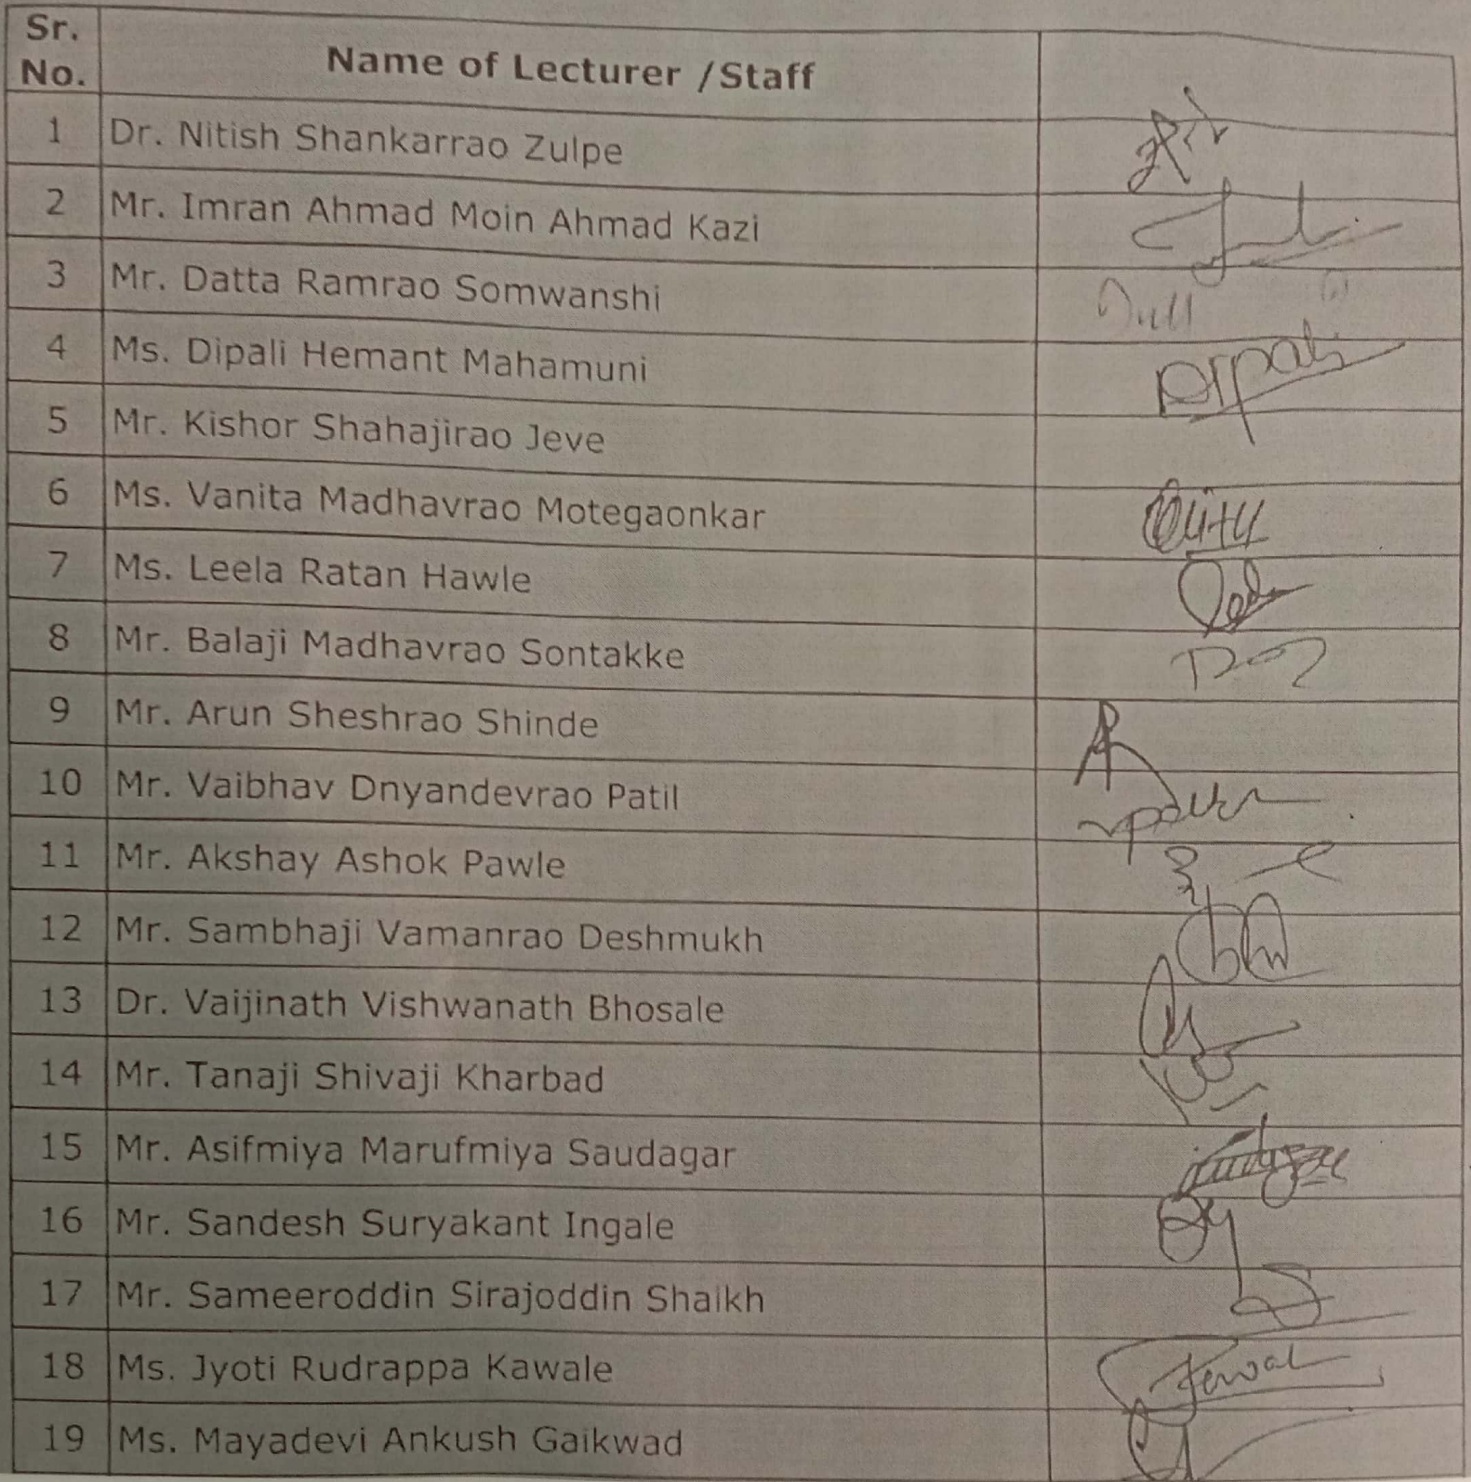 Sr. No. Name of Lecturer /Staff
1 Dr. Nitish Shankarrao Zulpe
2 Mr. Imran Ahmad Moin Ahmad Kazi
3 Mr. Datta Ramrao Somwanshi
4 Ms. Dipali Hemant Mahamuni
5 Mr. Kishor Shahajirao Jeve
6 Ms. Vanita Madhavrao Motegaonkar
7 Ms. Leela Ratan Hawle
8 Mr. Balaji Madhavrao Sontakke
9 Mr. Arun Sheshrao Shinde
10 Mr. Vaibhav Dnyandevrao Patil
11 Mr. Akshay Ashok Pawle
12 Mr. Sambhaji Vamanrao Deshmukh
13 Dr. Vaijinath Vishwanath Bhosale
14 Mr. Tanaji Shivaji Kharbad
15 Mr. Asifmiya Marufmiya Saudagar
16 Mr. Sandesh Suryakant Ingale
17 Mr. Sameeroddin Sirajoddin Shaikh
18 Ms. Jyoti Rudrappa Kawale
19 Ms. Mayadevi Ankush Gaikwad